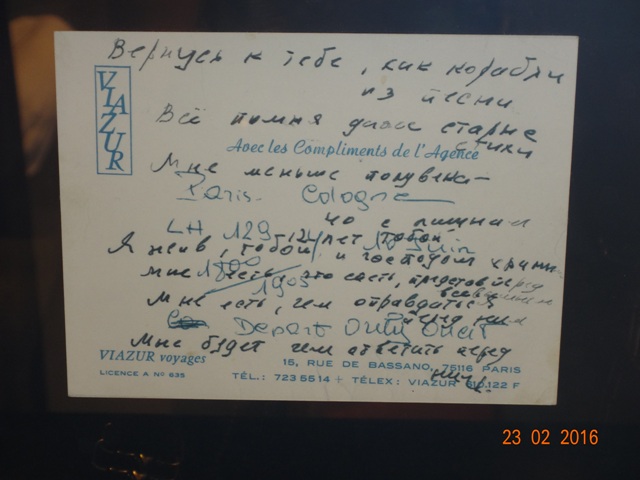 Вернусь к тебе, как корабли
из песни
VIAZUR
Всё помня даже старые
стихи
Avec les Compliments de l'Agence
Мне меньше полувека —
Paris - Cologne
40 с лишним
LH 129 лет тобой Juin
Я жив, тобой и господом храним
мне есть, что спеть, представ перед
1905 всевышним
Мне есть, чем оправдаться
перед ним
Depart Orly Ouest
Мне будет чем ответить перед
ним.
VIAZUR voyages
LICENCE A Nº 635
15, RUE DE BASSANO, 75116 PARIS
TÉL.: 723 55 14 + TÉLEX: VIAZUR 610.122 F
23 02 2016